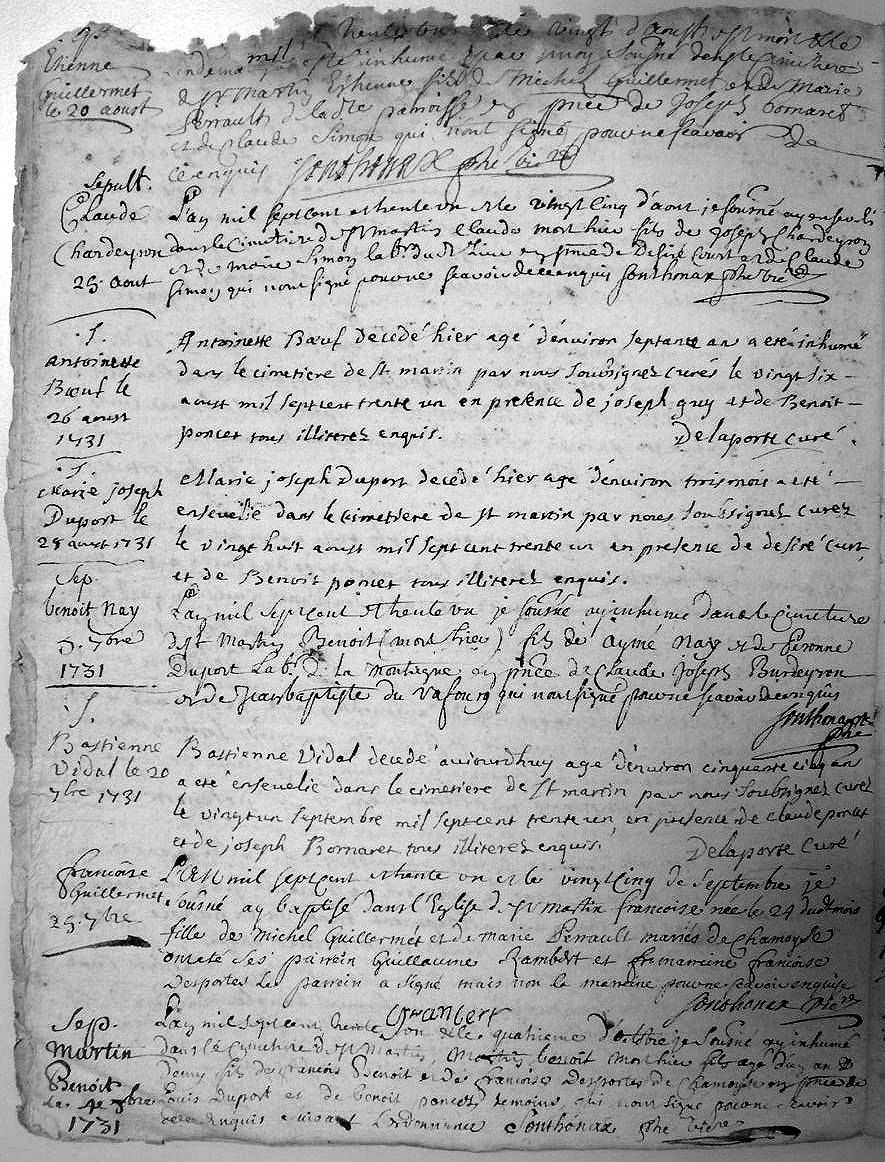 Etienne
guillermet
le 20 aoust
trente un et le vingt d'aoust est mort et le
mil esté inhumé par moy soussné dans le cimetiere
de St Martin Estienne fils de Michel Guillermet et de Marie
Perrault de la dte paroisse en pnce de Joseph bornaret
et de Claude Simon qui n'ont signé pour ne scavoir de
ce enquis Sonthonax ptre vicre
Sepult.
Claude
Chardeyron
25. aout
L'an mil sept cent et trente un et le vingt cinq d'aout je soussné ay enseveli
dans le cimetiere de St martin Claude mort hier fils de Joseph Chardeyron
et de marie Simon labr. du dt lieu en pnce de Desiré Court et de Claude
Simon qui n'ont signé pour ne scavoir de ce enquis Sonthonax ptre vicre
S.
Antoinette
Bœuf le
26 aoust
1731
Antoinette Bœuf decedé hier agé d'environ septante an a eté inhumé
dans le cimetiere de st martin par nous soubsignez curés le vingt six
aoust mil sept cent trente un en presence de joseph guy et de Benoit
poncet tous illiterez enquis. Delaporte curé
S.
Marie joseph
Duport le
28 aoust 1731
Marie joseph Duport decedé hier agé d'environ trois mois a eté
ensevelie dans le cimetiere de st martin par nous soubsignez curez
le vingt huit aoust mil sept cent trente un en presence de desiré curt
et de Benoit poncet tous illiterez enquis.
Sep.
benoit Nay
7bre
1731
L'an mil sept cent et trente un je soussné ay inhumé dans le cimetiere
de St Martin Benoit (mort hier) fils de aymé Nay et de Peronne
Duport Lab. de la montagne en pnce de Claude Joseph Burdeyron
et de Jean baptiste du Vafourg qui n'ont signé pour ne scavoir de enquis
Sonthonax
ptre
S.
Bastienne
Vidal le 20
7bre 1731
Bastienne Vidal decedé aujourdhuy agé d'environ cinquante cinq ans
a eté ensevelie dans le cimetiere de St martin par nous soubsignez curez
le vingt un septembre mil sept cent trente un en presence de claude poncet
et de joseph Bornaret tous illiterez enquis. Delaporte Curé
francoise
Guillermet
25. 7bre
L'an mil sept cent et trente un et le vingt cinq de Septembre je
soussné ay baptisé dans l'Eglise de St martin francoise née le 24 du dt mois
fille de Michel Guillermet et de marie Perrault mariés de Chamoyse
ont eté ses parrein Guillaume Rambert et sa marreine francoise
Desportes le parrein a signé mais non la mareine pour ne scavoir enquise
GRambert Sonthonax ptre vicre
Sep.
Martin
Benoit
1731
L'an mil sept cent trente un et le quatrieme d'octobre je soussné ay inhumé
dans le cimetiere de St Martin, benoit mort hier fils agé d'un an &
demy fils de francois Benoit et de francoise Desportes de Chamoyse en pnce de
Louis Duport et de benoit poncet temoins, qui n'ont signé pour ne scavoir
de ce enquis suivant l'ordonnance Sonthonax ptre vicre